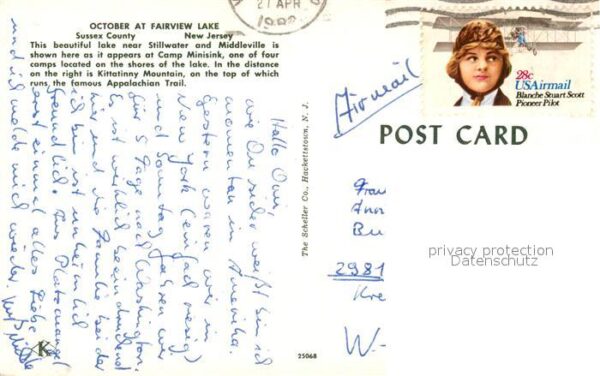 OCTOBER AT FAIRVIEW LAKE
Sussex County New Jersey
This beautiful lake near Stillwater and Middleville is
shown here as it appears at Camp Minisink, one of four
camps located on the shores of the lake. In the distance
on the right is Kittatinny Mountain, on the top of which
runs, the famous Appalachian Trail.
27 APR
Hallo Omi,
wie Du sicher weißt bin ich
momentan in Amerika.
Gestern waren wir in
New York (einfach riesig)
und Sonntag fahren wir
für 5 Tage nach Washington.
Es ist wirklich beeindruckend
hier und die Familie bei der
ich bin ist unheimlich
freundlich. Aus Platzmangel
erst einmal alles Liebe
und ich melde mich wieder.
K
The Scheller Co., Hackettstown, N. J.
25068
Airmail
28c
USAirmail
Blanche Stuart Scott
Pioneer Pilot
POST CARD
2981
W-
privacy protection
Datenschutz